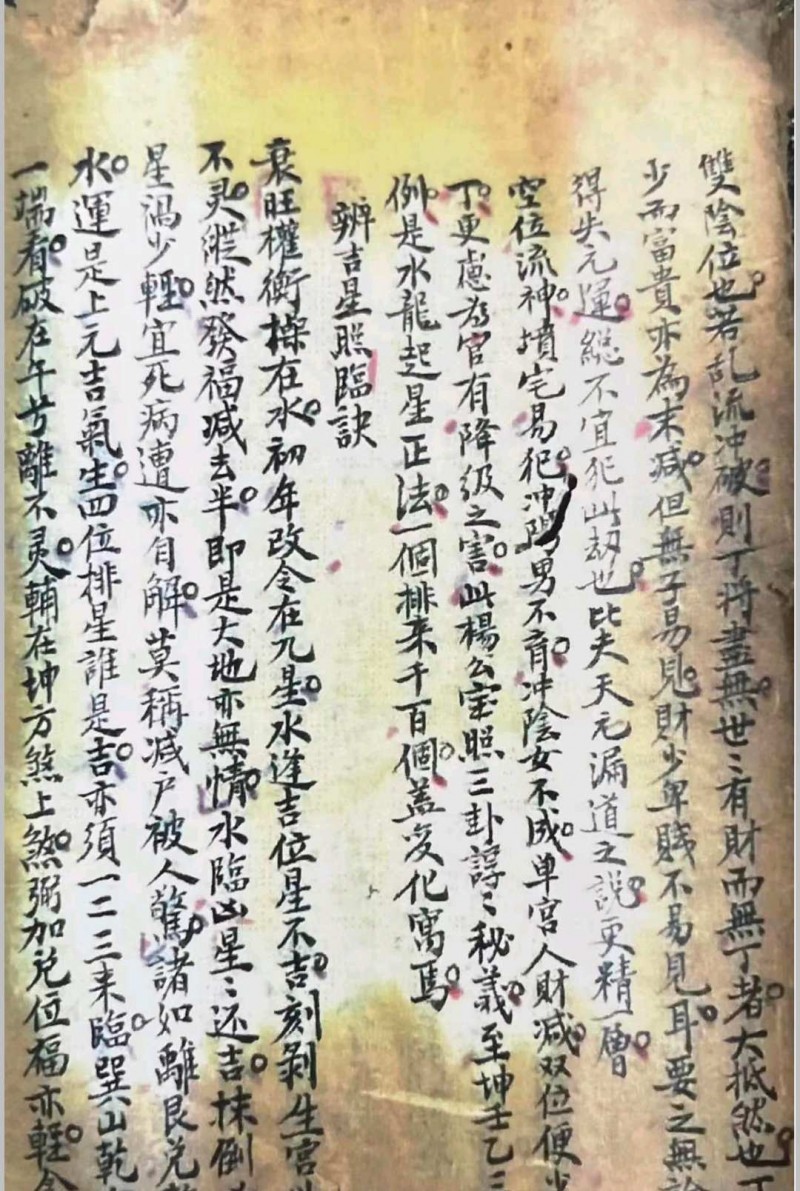 雙陰位也。若乱流冲破。則丁将盡無。世〻有財而無丁者。大抵然也。丁
少而富貴亦為末减。但無子易見。財少卑賤不易見耳。要之無論
得失元運。總不宜犯此刼也。比夫天元漏道之說。更精一層。
空位流神。墳宅易犯。冲陽男不育。冲陰女不成。单宫人財减。双位便
丁。更慮為官有降级之害。此楊公宝照三卦諄〻秘義。至坤壬乙三
例。是水龍起星正法。一個排来千百個。盖变化寓焉。
辨吉星照臨訣
衰旺權衡操在水。初年改令在九星。水逢吉位星不吉。刻剥生宫
不灵。縱然發福减去半。即是大地亦無情。水臨凶星〻还吉。抹倒
星禍少輕。宜死病遭亦自解。莫稱减户被人驚。諸如離艮兑
水。運是上元吉氣生。四位排星誰是吉。亦須一二三来臨。巽山乾
一端。看破在午兮離不灵。輔在坤方煞上煞。弼加兑位福亦輕。